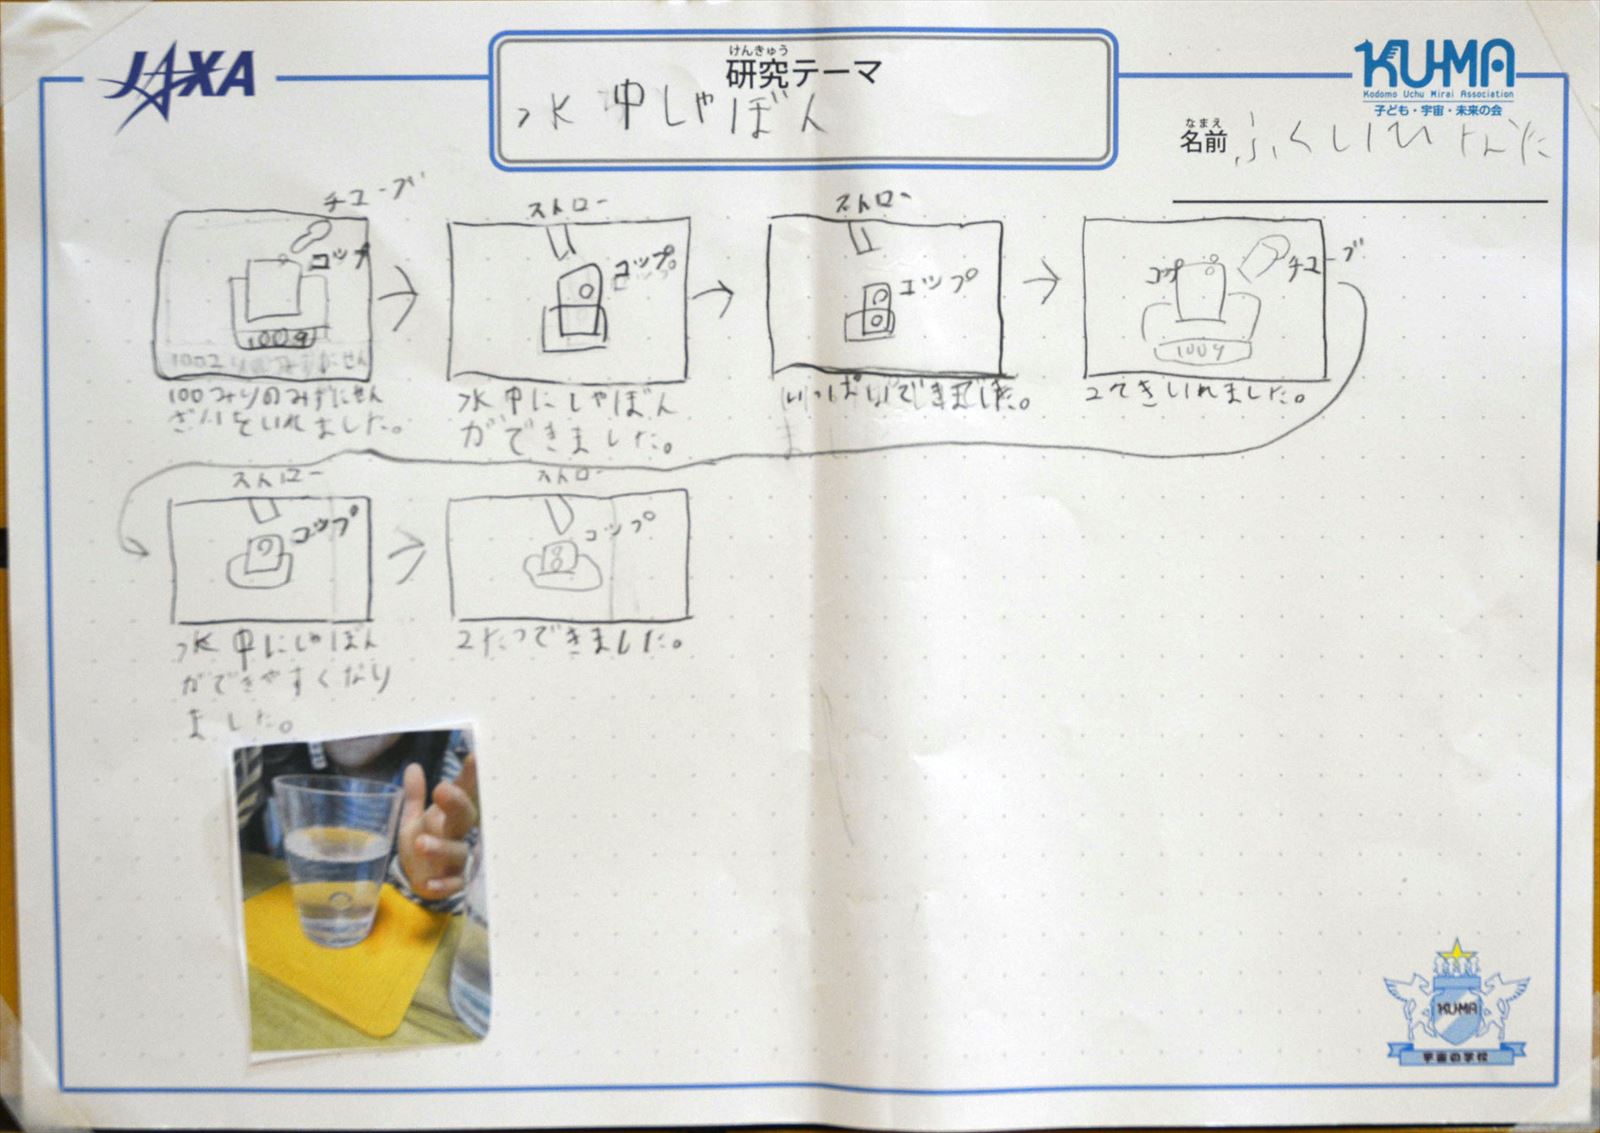 JAXA
けんきゅう
研究テーマ
水中しゃぼん
KUMA
Kodomo Uchu Mirai Association
子ども・宇宙・未来の会
なまえ
名前 ふくいひなた
チューブ
コップ
100g
100ミリのみずにせん
ざいをいれました。
ストロー
コップ
水中にしゃぼん
ができました。
ストロー
コップ
いっぱいできました。
コップ
チューブ
100g
2てきいれました。
ストロー
コップ
水中にしゃぼん
ができやすくなり
ました。
ストロー
コップ
2たつできました。
KUMA
宇宙の学校